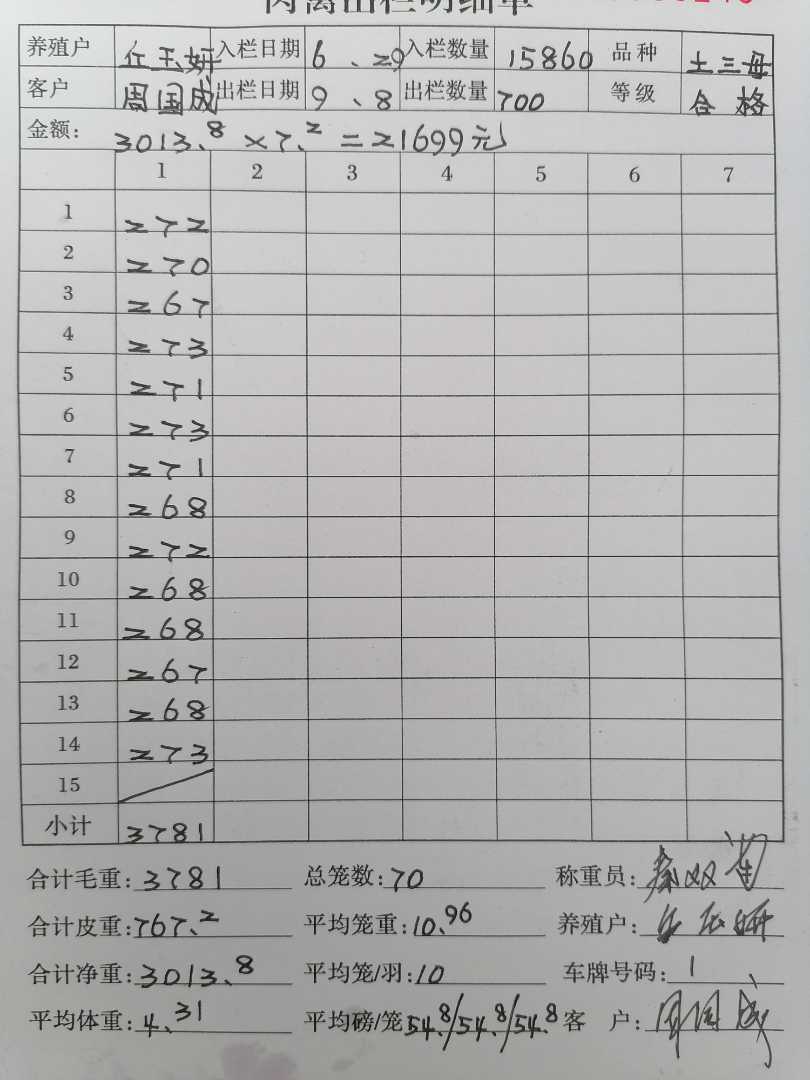 养殖户 任玉妍 入栏日期 6、29 入栏数量 15860 品种 土三母
客户 周国成 出栏日期 9、8 出栏数量 700 等级 合格
金额: 3013.8×7.2=21699元
1 2 3 4 5 6 7
1 272
2 270
3 267
4 273
5 271
6 273
7 271
8 268
9 272
10 268
11 268
12 267
13 268
14 273
15
小计 3781
合计毛重: 3781 总笼数: 70 称重员: 秦双
合计皮重: 767.2 平均笼重: 10.96 养殖户: 任玉妍
合计净重: 3013.8 平均笼/羽: 10 车牌号码: 1
平均体重: 4.31 平均磅/笼 54.8/54.8/54.8 客 户: 周国成